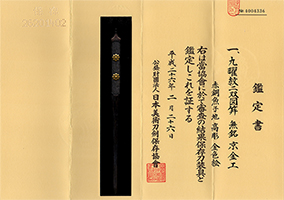 鑑定書
一、九曜紋二双図笄 無銘 京金工
赤銅魚子地 高彫 金色絵
右は當協會に於て審査の結果保存刀装具と
鑑定しこれを証する
平成二十六年二月二十六日
公益財団法人日本美術刀剣保存協會